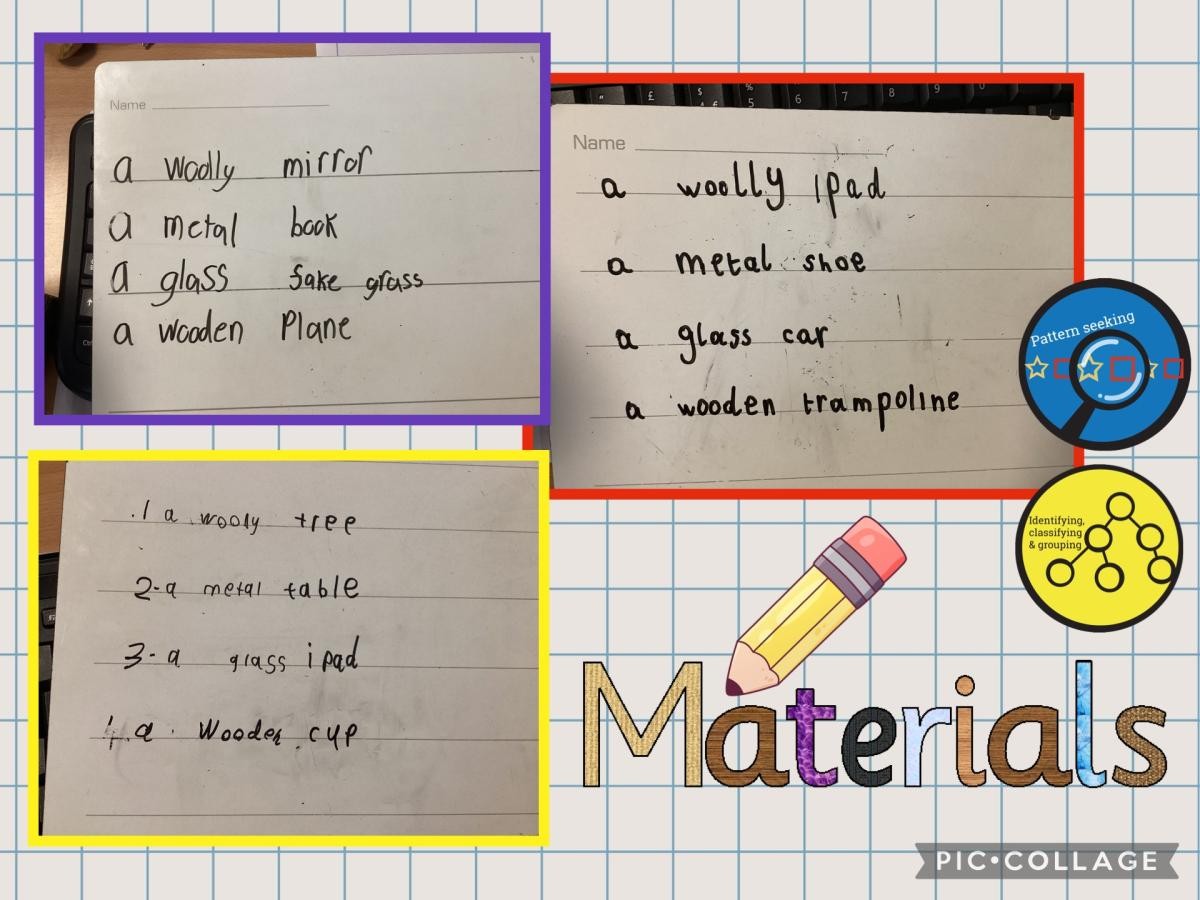 Name
a woolly mirror
a metal book
a glass fake grass
a wooden Plane
£
$
%
5
6
7
8
9
0
Name
a woolly ipad
a metal shoe
a glass car
a wooden trampoline
Pattern seeking
Identifying,
classifying
& grouping
.1 a wooly tree
2-a metal table
3-a glass ipad
4.a. Wooden cup
Materials
PIC•COLLAGE